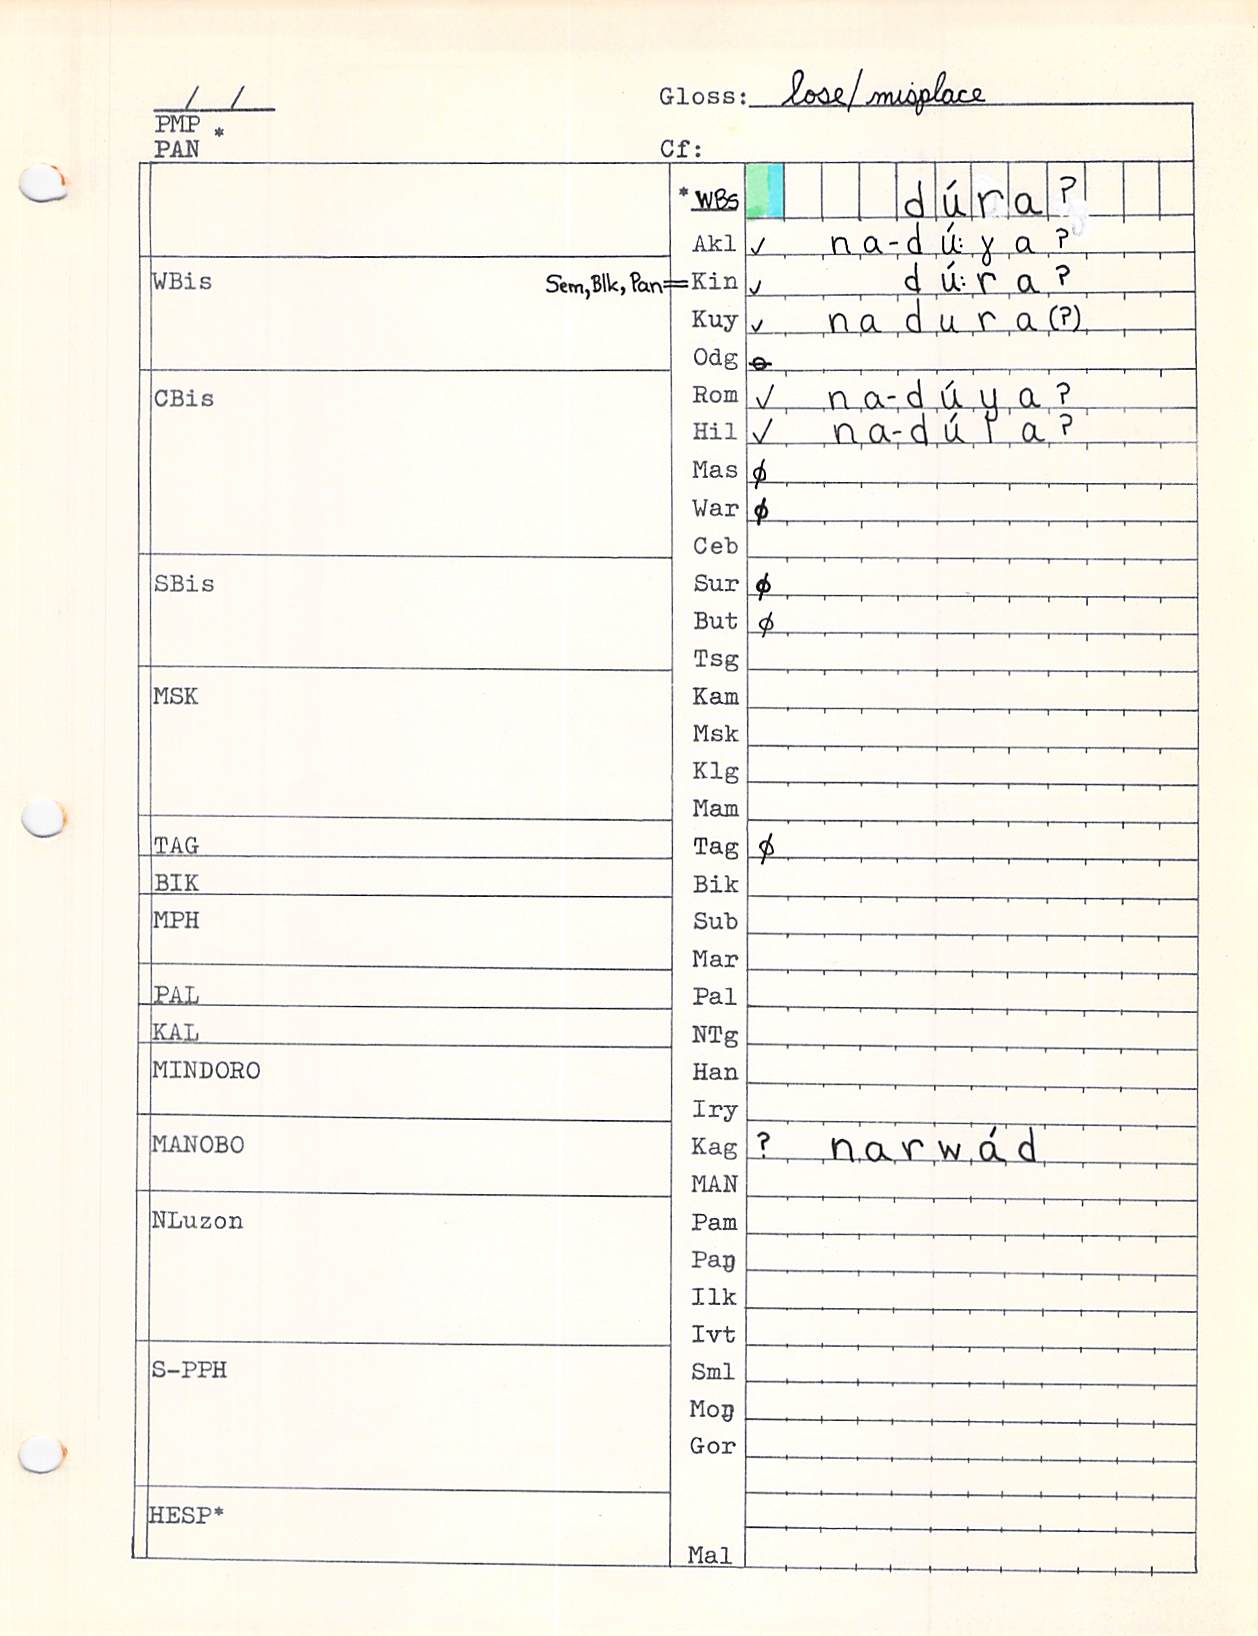 / /
Gloss: lose/misplace
PMP *
PAN
Cf:
*WBs dúraʔ
Akl ✓ na-dú:ɣaʔ
WBis Sem, Blk, Pan=Kin ✓ dú:raʔ
Kuy ✓ nadura(ʔ)
Odg ⦵
CBis Rom ✓ na-dúyaʔ
Hil ✓ na-dúlaʔ
Mas ∅
War ∅
Ceb
SBis Sur ∅
But ∅
Tsg
MSK Kam
Msk
Klg
Mam
TAG Tag ∅
BIK Bik
MPH Sub
Mar
PAL Pal
KAL NTg
MINDORO Han
Iry
MANOBO Kag ? narwád
MAN
NLuzon Pam
Paŋ
Ilk
Ivt
S-PPH Sml
Moŋ
Gor
HESP*
Mal